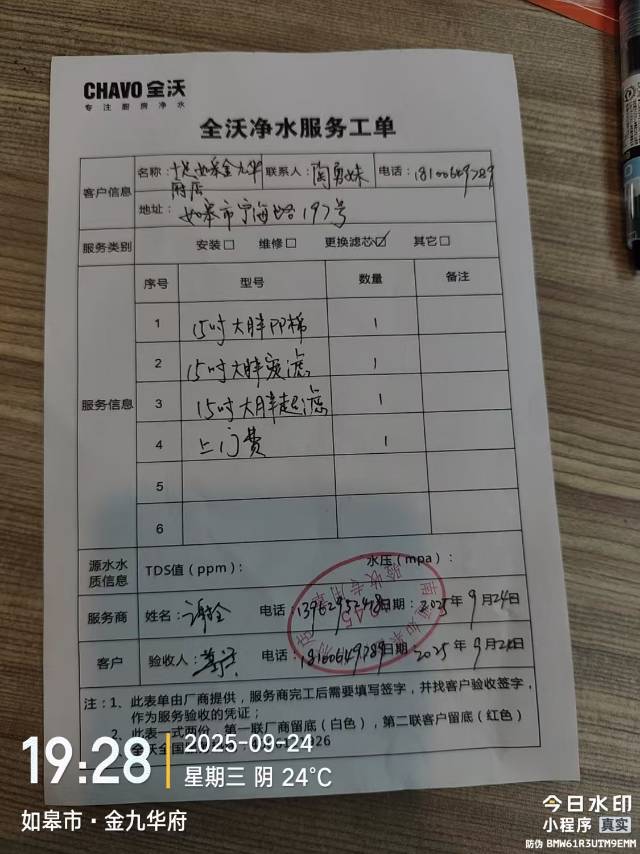 CHAVO 全沃
专注厨房净水
全沃净水服务工单
客户信息
名称：
如皋金九华
附店
联系人：
电话：18100649789
地址：如皋市宁海路197号
服务类别 安装□ 维修□ 更换滤芯☑ 其它□
服务信息
序号 型号 数量 备注
1 15吋大胖PP棉 1
2 15吋大胖炭滤 1
3 15吋大胖超滤 1
4 上门费 1
5
6
源水水质信息 TDS值（ppm）： 水压（mpa）：
服务商 姓名：谢全 电话： 日期：2025年9月24日
客户 验收人： 电话：18100649789 日期：2025年9月24日
注：1、此表单由厂商提供，服务商完工后需要填写签字，并找客户验收签字，
作为服务验收的凭证；
2、此表一式两份，第一联厂商留底（白色），第二联客户留底（红色）
全沃全国
19:28
2025-09-24
星期三 阴 24℃
如皋市·金九华府
今日水印
小程序 真实
防伪 BMW61R3UTM9EMM